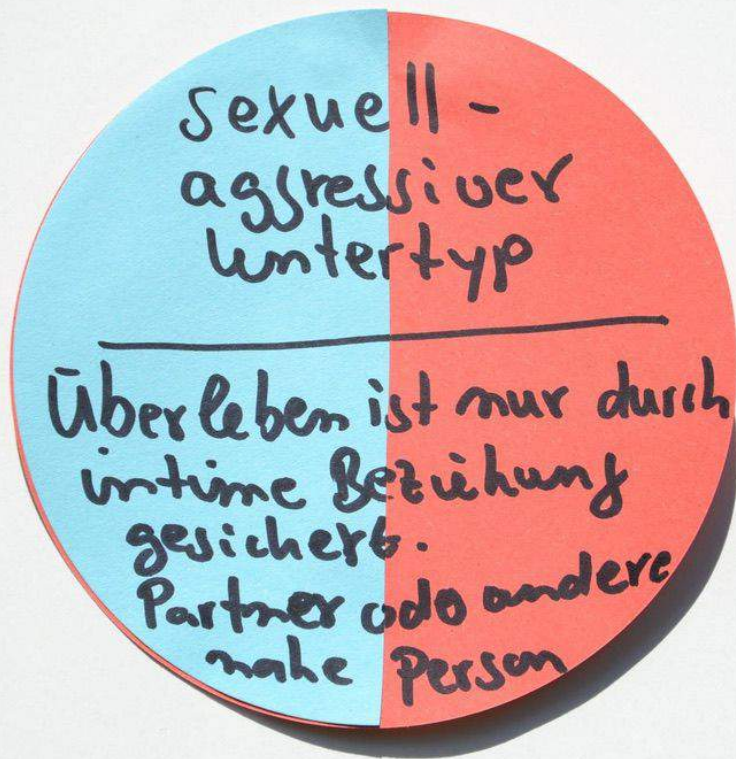 sexuell-
aggressiver
Untertyp
Überleben ist nur durch
intime Beziehung
gesichert.
Partner odo andere
nahe Person